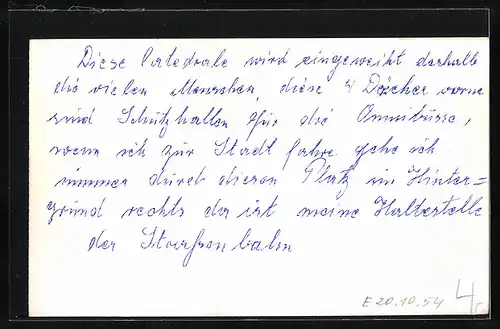 Diese Catedrale wird eingeweiht desshalb
die vielen Menschen, diese 4 Däcker vorne
sind Schutzhallen für die Omnibusse,
wenn ich zur Stadt fahre gehe ich
immer durch diesen Platz im Hinter=
grund rechts da ist meine Haltestelle
der Strassenbahn
E 20.10.54